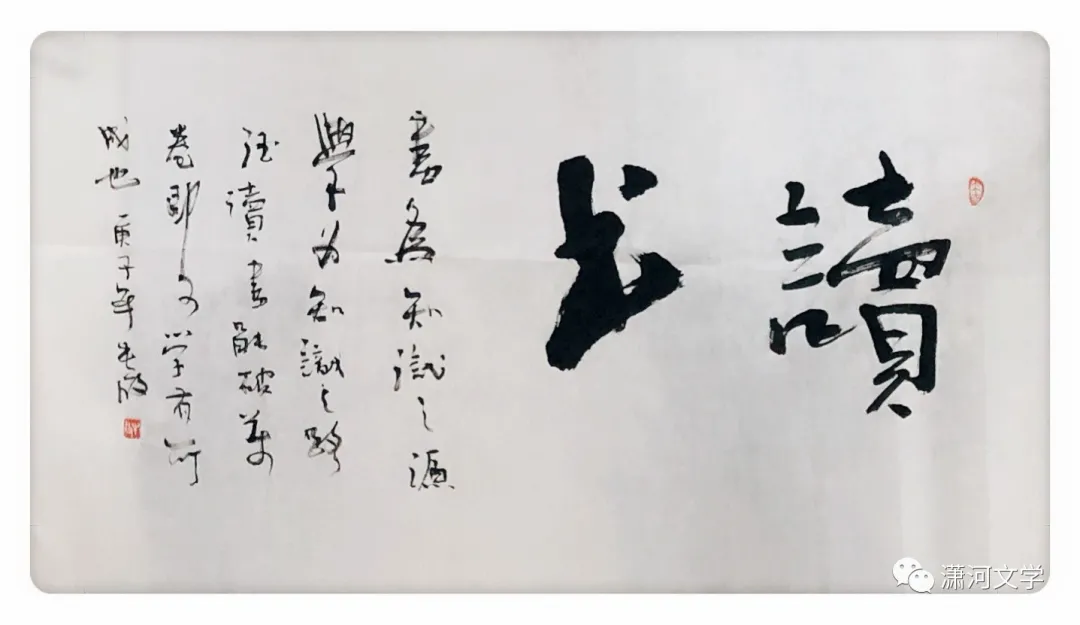 讀书
書為知識之源
學为知識之路
径讀書能破萬
卷即可學有所
成也 庚子年
潇河文学